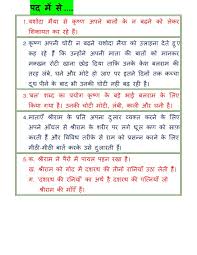 पद में से ....
1. यशोदा मैया से कृष्ण अपने बालों के न बढ़ने को लेकर
शिकायत कर रहे हैं।
2. कृष्ण अपनी चोटी न बढ़ने यशोदा मैया को उलाहना देते हुए
कह रहे हैं कि उन्होंने अपनी माता की बातों को मानकर
मक्खन रोटी खाना छोड़ दिया ताकि उनके केश बलराम की
तरह लंबे, घने और मोटे हो जाए पर इतने दिनों तक कच्चा
दूध पीने के बाद भी उनकी चोटी नहीं बढ़ी है।
3. 'बल' शब्द का प्रयोग कृष्ण के बड़े भाई बलराम के लिए
किया गया है। उनकी चोटी मोटी, लंबी, काली और घनी है।
4. माताएँ श्रीराम के प्रति अपना दुलार व्यक्त करने के लिए
अपने आँचल से श्रीराम के शरीर पर लगे धूल कण को साफ़
करती हैं और विविध तरीके से राम को प्रसन्न करने के लिए
मीठी-मीठी बातें करके उसे दुलारती हैं।
5. क. श्रीराम ने पैरों में पायल पहन रखा है।
ख. श्रीराम को गोद में दशरथ की तीनों रानियाँ उठाती हैं।
ग. दशरथ की रनियाँ का अर्थ है दशरथ की पत्नियाँ जो
श्रीराम की माँ हैं।